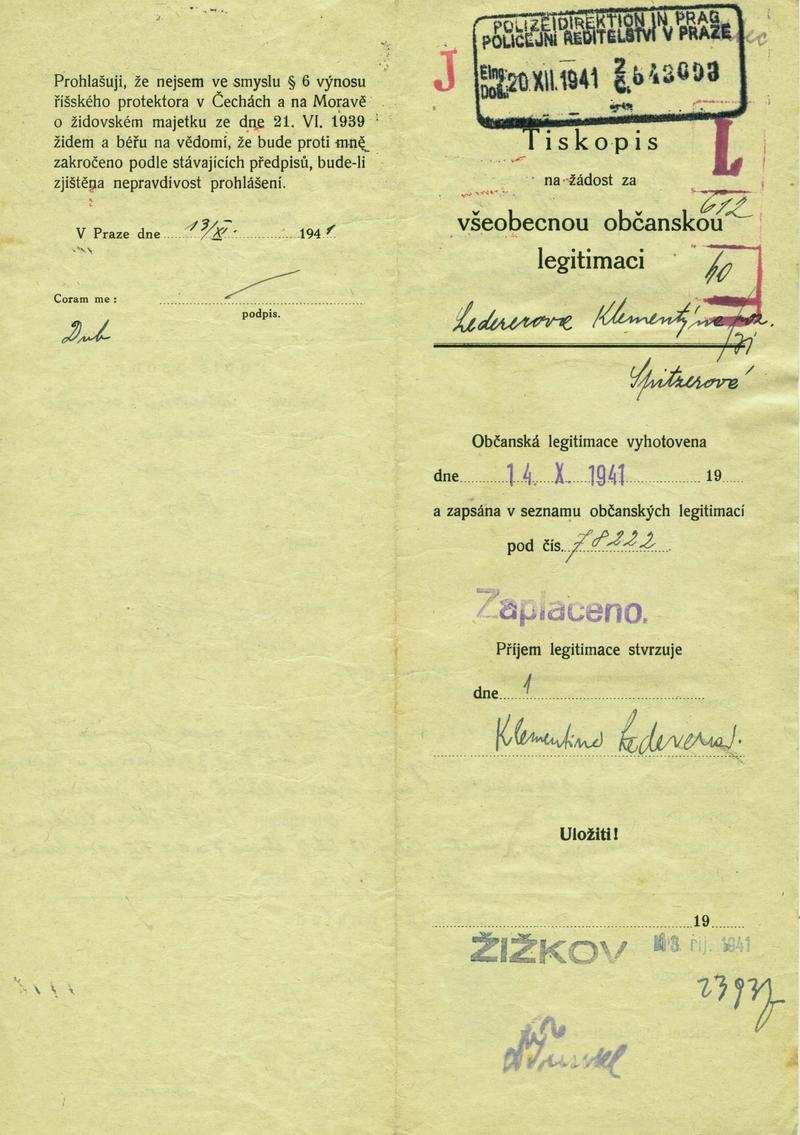 Prohlašuji, že nejsem ve smyslu § 6 výnosu
říšského protektora v Čechách a na Moravě
o židovském majetku ze dne 21. VI. 1939
židem a béřu na vědomí, že bude proti mně
zakročeno podle stávajících předpisů, bude-li
zjištěna nepravdivost prohlášení.
V Praze dne 13/XI. 1941
Coram me :
podpis.
Dub
J
POLIZEIDIREKTION IN PRAG
POLICEJNÍ ŘEDITELSTVÍ V PRAZE
Eing.
Doš. 20.XII.1941 Z. č. 643093
Tiskopis
L
na žádost za
612
všeobecnou občanskou
legitimaci
40
Ledererova Klementýna roz.
Spitzerové
Občanská legitimace vyhotovena
dne 14. X. 1941 19
a zapsána v seznamu občanských legitimací
pod čís. 78222
Zaplaceno.
Příjem legitimace stvrzuje
dne 1
Klementina Ledererová.
Uložiti!
19
ŽIŽKOV říj. 1941